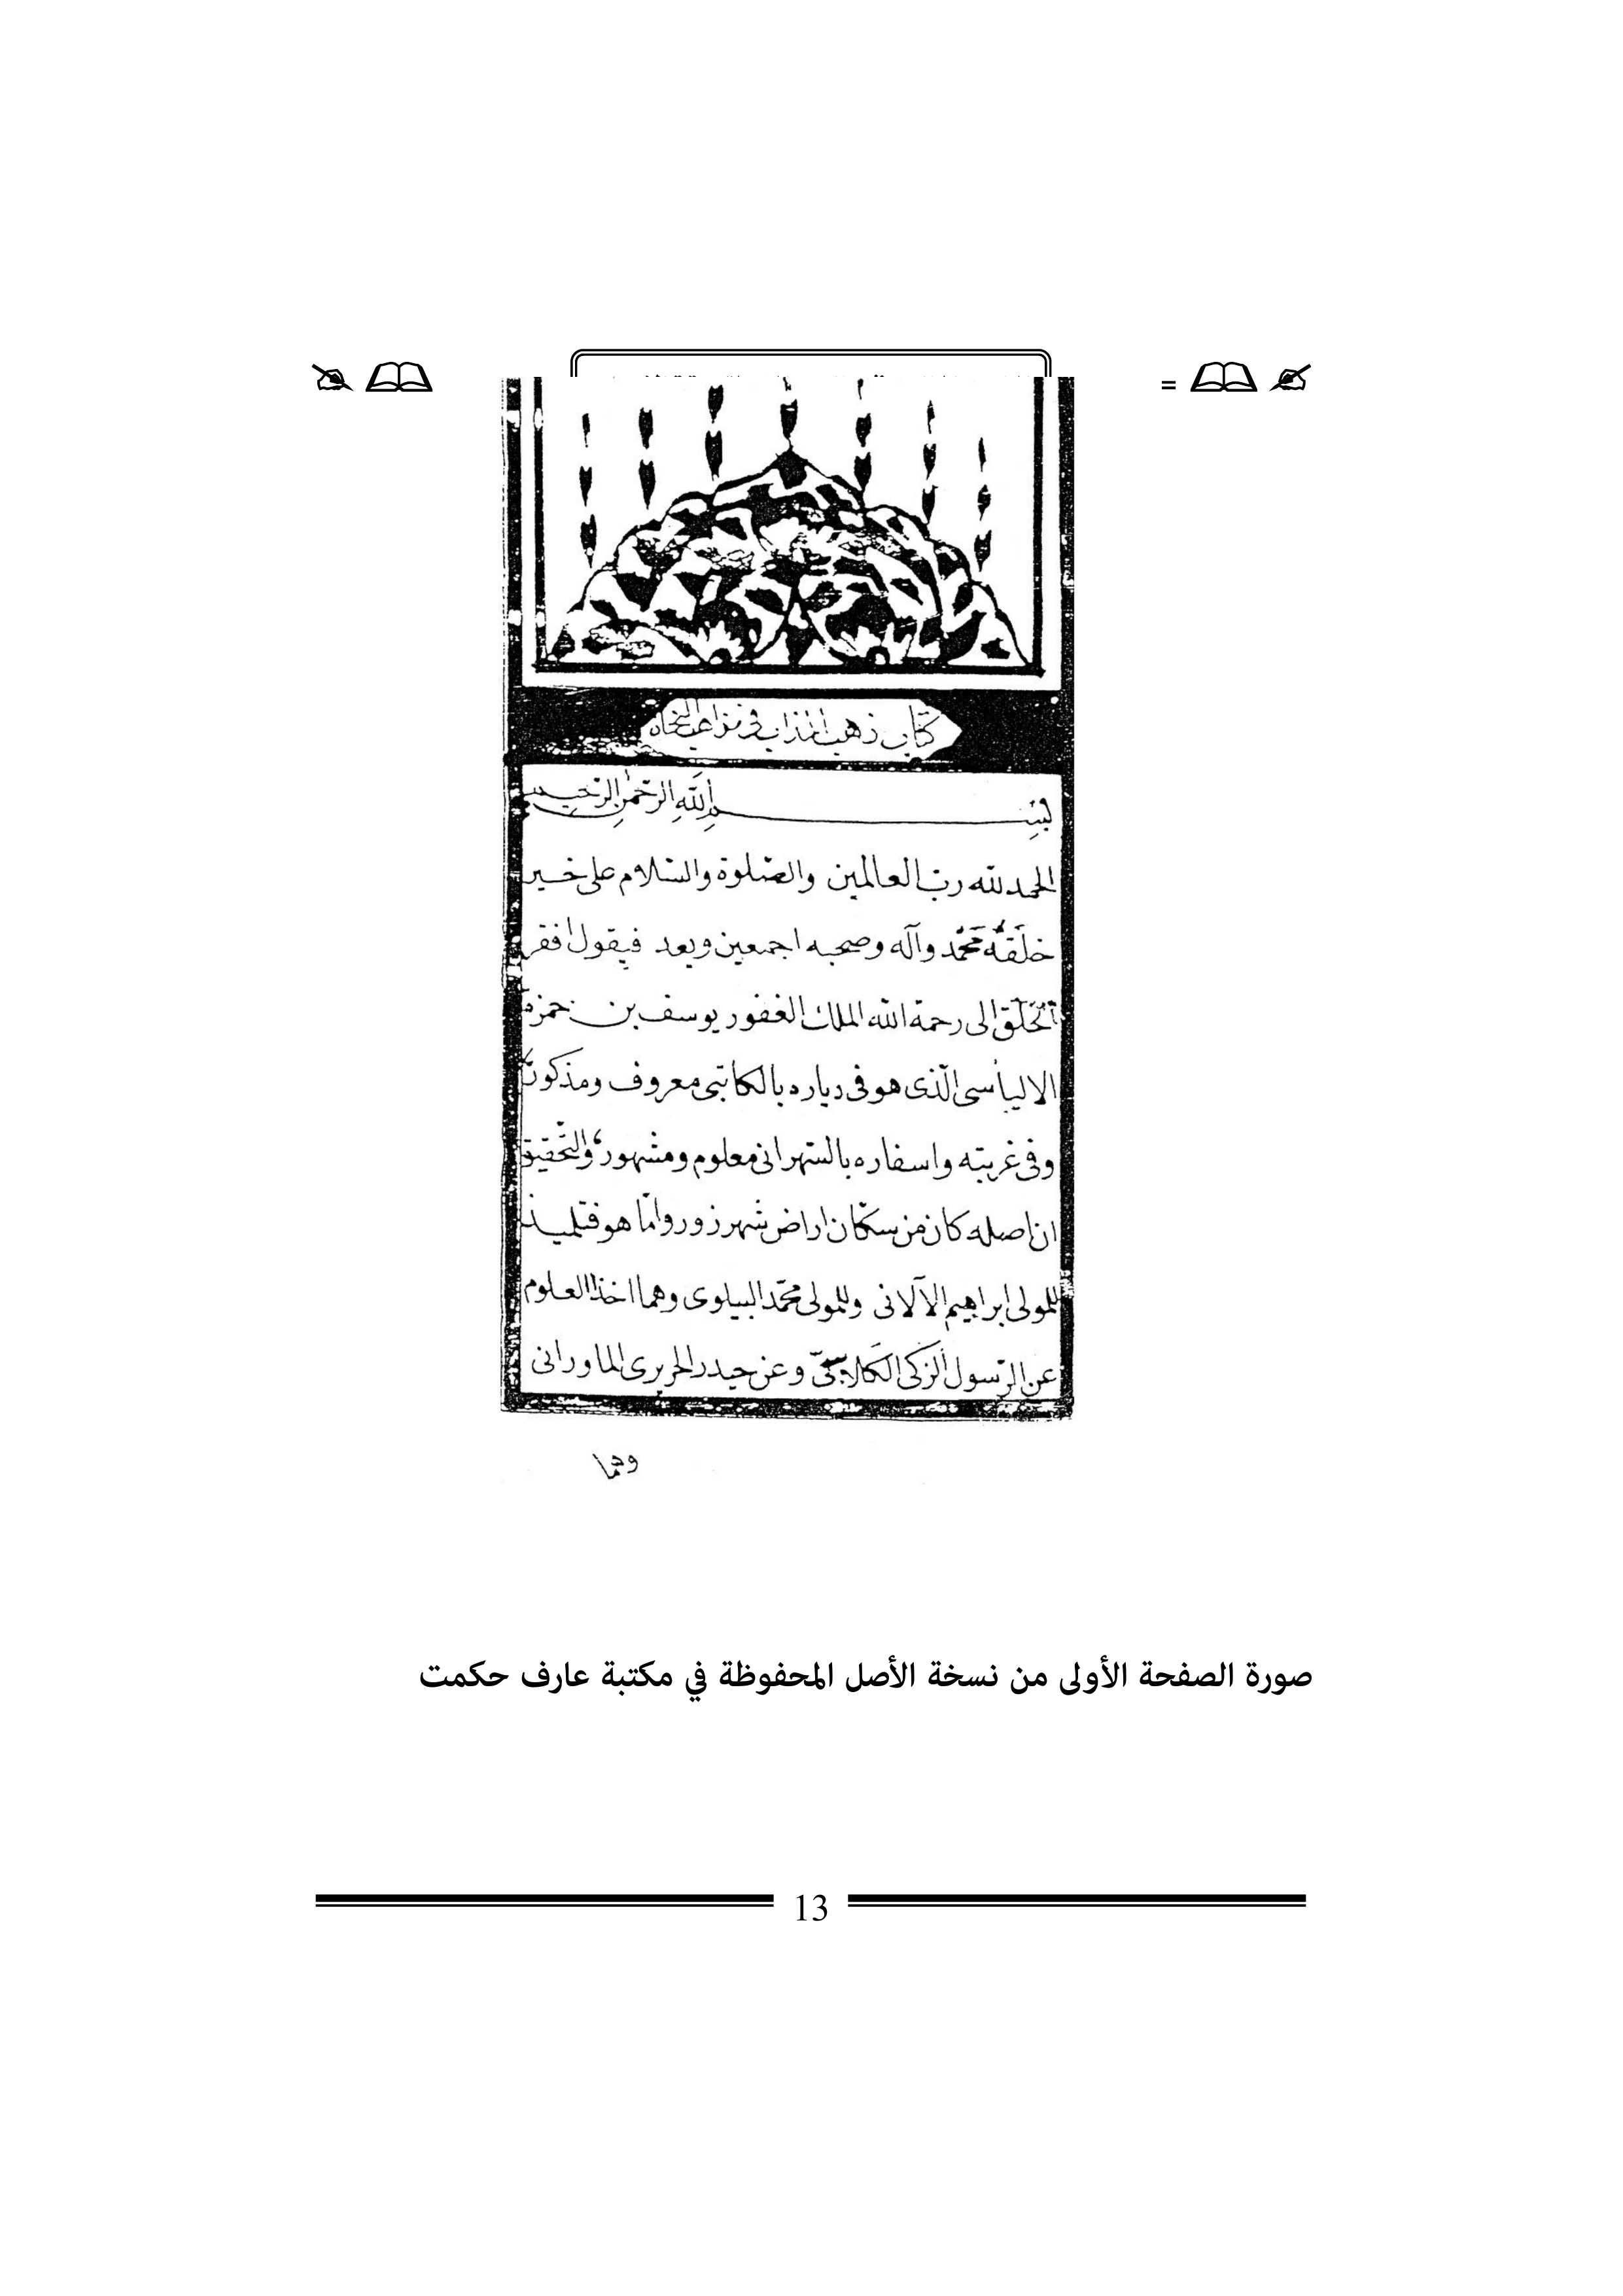 =
كتاب ذهب المذاب في مذاهب النحاه
بسم الله الرحمن الرحيم
الحمد لله رب العالمين والصلوة والسلام على خير
خلقه محمد وآله وصحبه اجمعين وبعد فيقول افقر
الخلق الى رحمة الله الملك الغفور يوسف بن حمزة
الالياسى الذى هو فى دياره بالكاتبى معروف ومذكور
وفى غربته واسفاره بالسهرانى معلوم ومشهور والتحقيق
ان اصله كان من سكان اراض شهرزور واما هو فتلميذ
للمولى ابراهيم الآلانى وللمولى محمد البيلوى وهما اخذا العلوم
عن الرسول الزكى وعن حيدر الحريرى الماورانى
وهما
صورة الصفحة الأولى من نسخة الأصل المحفوظة في مكتبة عارف حكمت
13